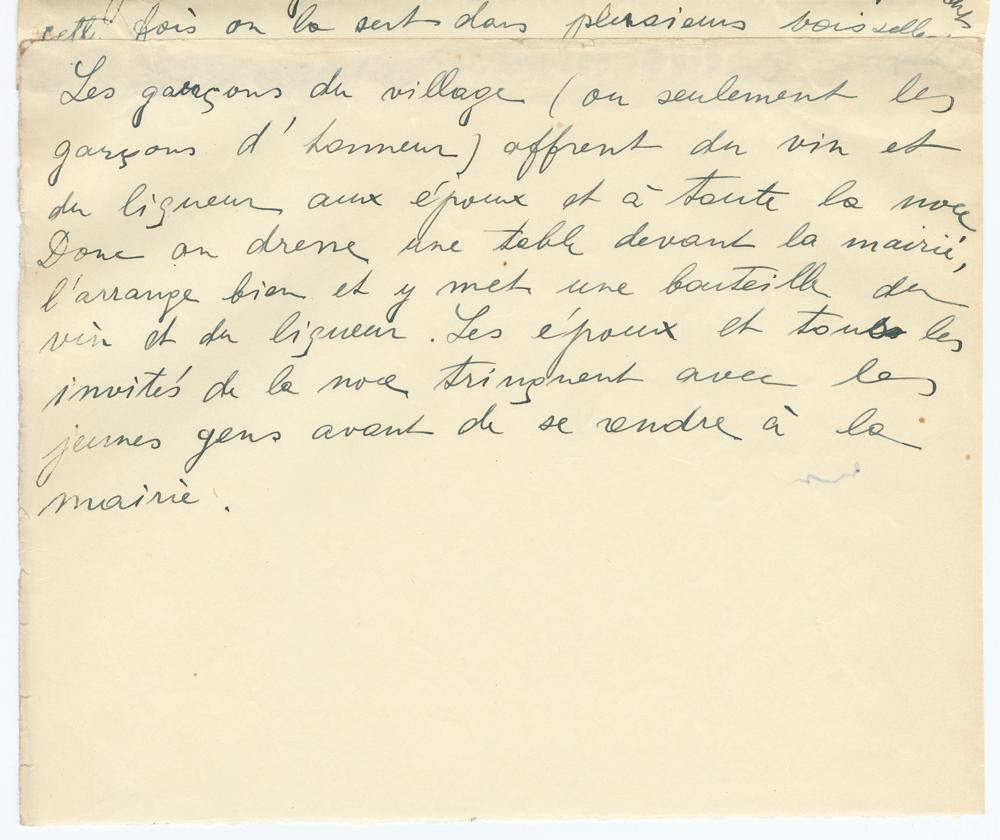 cette fois on la sert dans plusieurs vaisselles
Les garçons du village (ou seulement les
garçons d'honneur) offrent du vin et
du liqueur aux époux et à toute la noce
Donc on dresse une table devant la mairie,
l'arrange bien et y met une bouteille du
vin et du liqueur. Les époux et tous les
invités de la noce trinquent avec les
jeunes gens avant de se rendre à la
mairie.